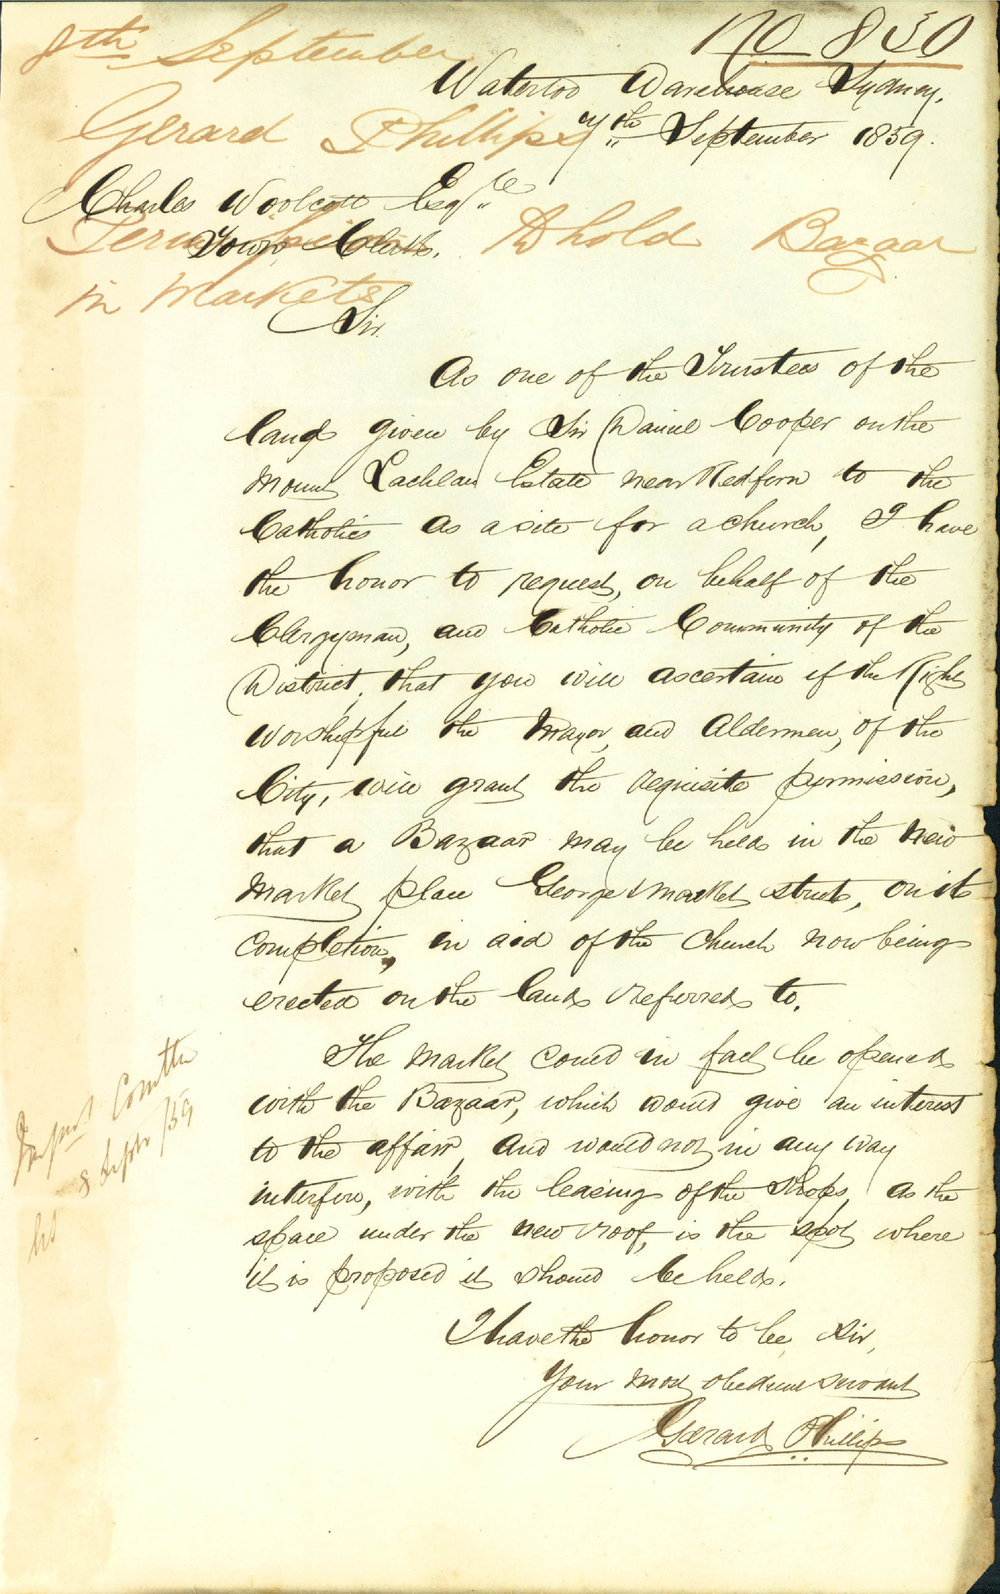 No 830
8th September
Waterloo Warehouse Sydney.
Gerard Phillips
7th September 1859.
Charles Woolcott Esqre
Town Clerk.
To hold Bazaar
in Markets
Sir
As one of the Trustees of the
land given by Sir Daniel Cooper on the
Mount Lachlan Estate near Redfern to the
Catholics as a site for a church, I have
the honor to request, on behalf of the
Clergyman, and Catholic Community of the
District, that you will ascertain if the Right
Worshipful the Mayor, and Aldermen, of the
City, will grant the requisite permission,
that a Bazaar may be held in the new
Market place George & Market streets, on its
completion, in aid of the Church now being
erected on the land referred to.
The Market could in fact be opened
with the Bazaar, which would give an interest
to the affair, and would not in any way
interfere, with the leasing of the Shops, as the
space under the new roof, is the spot where
it is proposed it should be held.
I have the honor to be, Sir,
Your most obedient servant
Gerard Phillips
Comttee
8 Septr /59